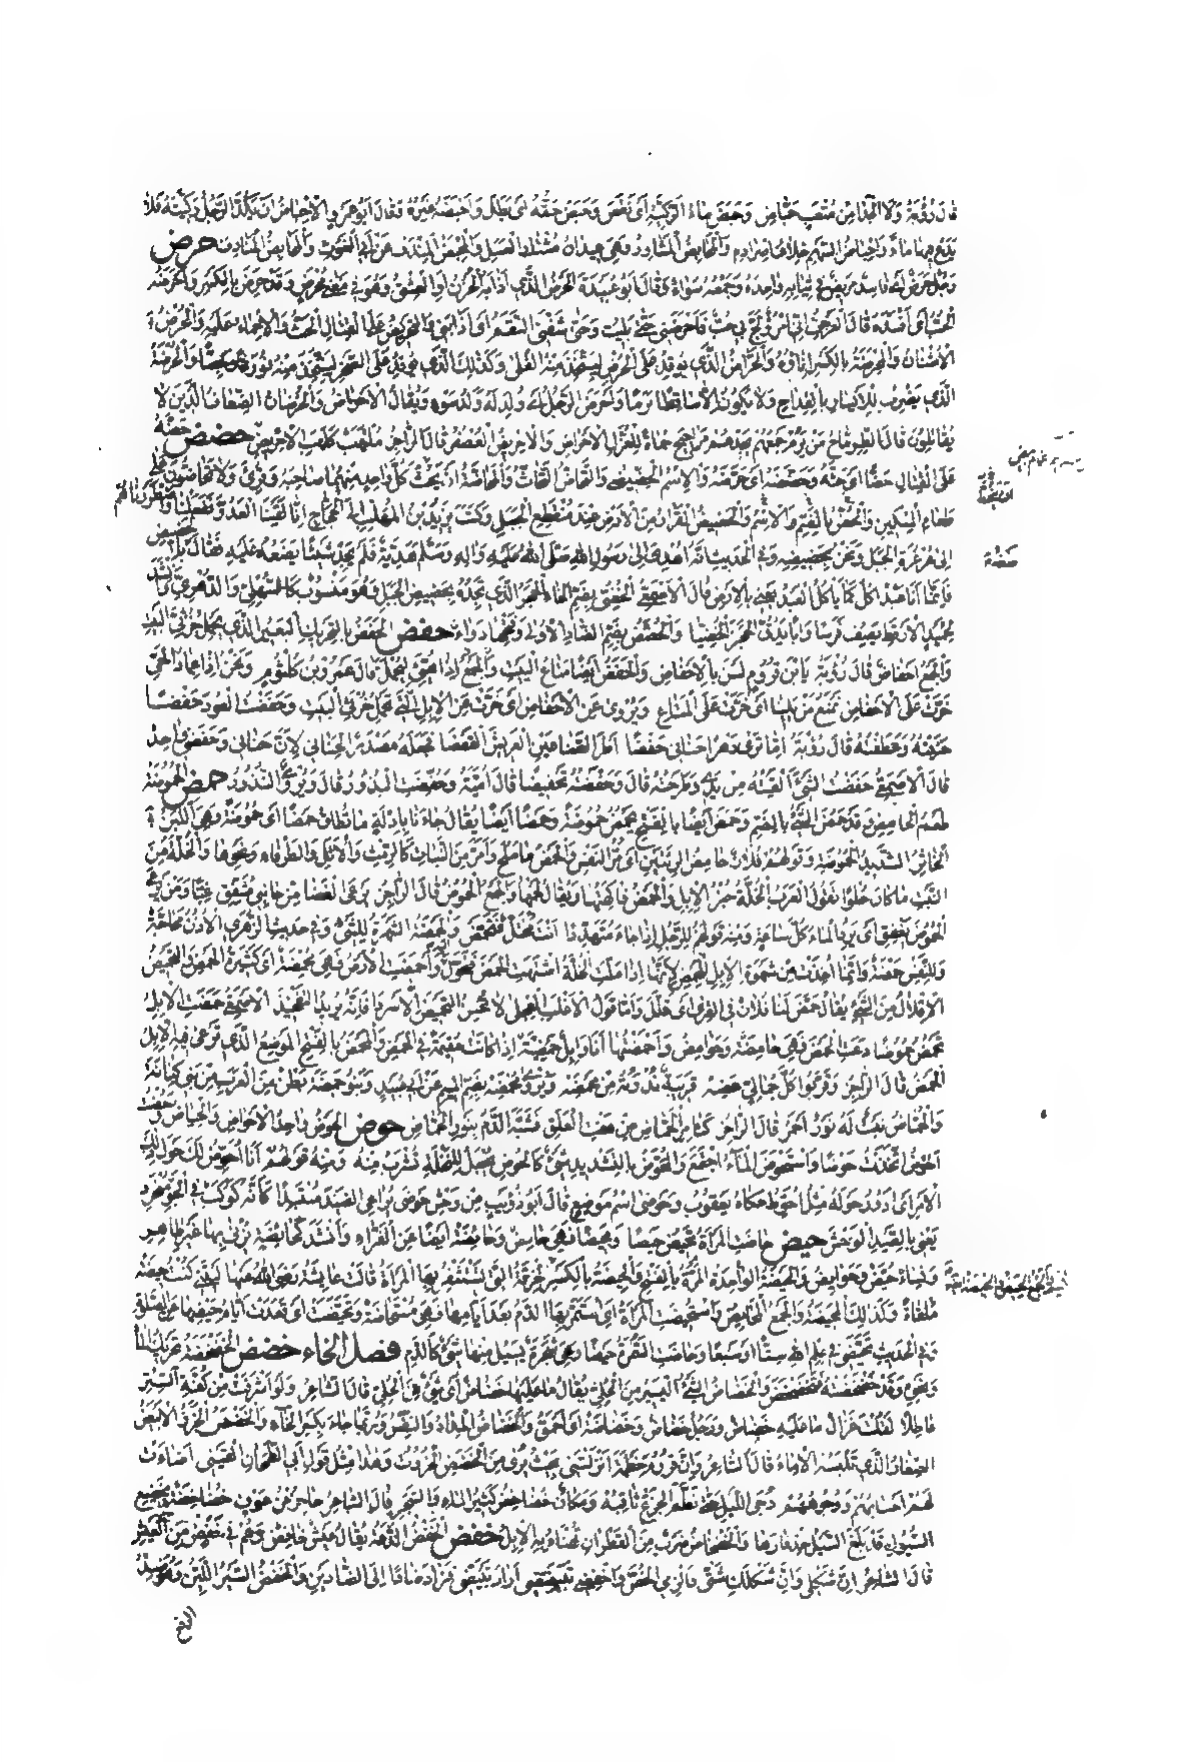 قال رؤبة ولا الجدا من متعب حباض وحبض ماء الركية اى نقص وحبض حقه اى بطل واحبضه غيره فقال ابو عمرو الاحباض ان يكد الرجل ركيته فلا
يدع فيها ماء حرض
رجل حرض اى فاسد مريض في ثيابه واحده وجمعه سواء وقال ابو عبيدة الحرض الذى اذابه الحزن او العشق وهو في معنى محرض وقد حرض بالكسر واحرضه
الحب اى افسده قال العرجى انى امرؤ لج بى حب فاحرضنى حتى بليت وحتى شفنى السقم اى اذابنى والتحريض على القتال الحث والاحماء عليه والحرض
الاشنان والمحرضة بالكسر اناؤه والحراض الذى يوقد على الحرض ليتخذ منه القلى وكذلك الذى يوقد على الصخر ليتخذ منه نورة او جصا والحرضة
الذى يضرب للايسار بالقداح ولا يكون الا ساقطا برما واحرض الرجل اى ولد له ولد سوء ويقال الاحراض والحرضان الضعاف الذين لا
يقاتلون قال الطرماح من يرم جمعهم يجدهم مراجيح حماة للعزل الاحراض والاحريض العصفر قال الراجز ملتهب كلهب الاحريض حضض حضه
على القتال حضا اى حثه وحضضه اى حرضه والاسم الحضيضى والتحاض التحاث والمحاضة ان يحث كل واحد منهما صاحبه وقرئ ولا تحاضون على
طعام المسكين والحض بالضم الاسم والحضيض القرار من الارض عند منقطع الجبل وكتب يزيد بن المهلب الى الحجاج انا لقينا العدو ففعلنا واضطررناهم
الى عرعرة الجبل ونحن بحضيضه وفى الحديث انه اهدى الى رسول الله صلى الله عليه واله وسلم هدية فلم يجد شيئا يضعه عليه فقال
فانما انا عبد اكل كما ياكل العبد يعنى بالارض قال الاصمعى الحضى بضم الحاء الحجر الذى تجده بحضيض الجبل وهو منسوب كالسهلى والدهرى وانشد
لحميد الارقط يصف فرسا وابا يدق الحجر الحضيا والحضض بضم الضاد الاولى وفتحها دواء حفض الحفض بالتحريك البعير الذى يحمل خرثى البيت
والجمع احفاض قال رؤبة يابن قروم لسن بالاحفاض والحفض ايضا متاع البيت اذا هيئ ليحمل قال عمرو بن كلثوم ونحن اذا عماد الحى
خرت على الاحفاض نمنع من يلينا اى خرت على المتاع ويروى عن الاحفاض اى خرت عن الابل التى تحمل خرثى البيت وحفضت العود حفضا
حنيته وعطفته قال رؤبة اما ترى دهرا حنانى حفضا اطر الصناعين العريش القعضا فجعله مصدر الحنانى لان حنانى وحفضنى واحد
قال الاصمعى حفضت الشئ القيته من يدى وطرحته قال وحفضته تحفيضا قال امية وحفضت البدور قال ويروى النذور حمض الحموضة
طعم الحامض وقد حمض الشئ بالضم وحمض ايضا بالفتح يحمض حموضة وحمضا ايضا يقال جاءنا بادلة ما تطاق حمضا اى حموضة وهى اللبن
الخاثر الشديد الحموضة وقولهم فلان حامض الرئتين اى مر النفس والحمض ما ملح وامر من النبات كالرمث والاثل والطرفاء ونحوها والخلة من
النبت ما كان حلوا تقول العرب الخلة خبز الابل والحمض فاكهتها ويقال لحمها والجمع الحموض قال الراجز يرعى الغضا من جانبى مشفق غبا ومن يرعى
الحموض يغفق اى يرد الماء كل ساعة ومنه قولهم للرجل اذا جاء متهددا انت مختل فتحمض والحمضة الشهوة للشئ وفى حديث الزهرى الاذن مجاجة
وللنفس حمضة وانما اخذت من شهوة الابل للحمض لانها اذا ملت الخلة اشتهت الحمض فتحول اليه واحمضت الارض فهى محمضة اى كثيرة الحمض والتحميض
الاقلال من الشئ يقال حمض لنا فلان في القرى اى قلل واما قول الاغلب العجلى لا يحسن التحميض الا سردا فانه يريد التفخيذ الاصمعى حمضت الابل
تحمض حموضا رعت الحمض فهى حامضة وحوامض واحمضتها انا وابل حمضية اذا كانت مقيمة في الحمض والمحمض بالفتح الموضع الذى ترعى فيه الابل
الحمض قال الراجز وقربوا كل جمالى عضه قريبة ندوته من محمضه ويروى محمضه بضم الميم عن ابى عبيد وبنو حمضة بطن من العرب من بنى كنانة
والحماض نبت له نور احمر قال الراجز كثامر الحماض من هفت العلق فشبه الدم بنور الحماض حوض الحوض واحد الاحواض والحياض وحضت
احوض اتخذت حوضا واستحوض الماء اجتمع والمحوض بالتشديد شئ كالحوض يجعل للنخلة تشرب منه ومنه قولهم انا احوض لك حول ذلك
الامر اى ادور حوله مثل احوط حكاه يعقوب وحوضى اسم موضع قال ابو ذؤيب من وحش حوضى يراعى الصيد منتبذا كانه كوكب في الجو منحرد
يعنى بالصيد الوحش حيض حاضت المراة تحيض حيضا ومحيضا فهى حائض وحائضة ايضا عن الفراء وانشد كحائضة يزنى بها غير طاهر
ونساء حيض وحوائض والحيضة الواحدة المرة بالفتح والحيضة بالكسر الخرقة التى تستثفر بها المراة قالت عائشة رضى الله عنها ليتنى كنت حيضة
ملقاة وكذلك المحيضة والجمع المحايض واستحيضت المراة اى استمر بها الدم بعد ايامها فهى مستحاضة وتحيضت اى قعدت ايام حيضها عن الصلاة
وفى الحديث تحيضى في علم الله ستا او سبعا وحاضت السمرة حيضا وهى شجرة يسيل منها شئ كالدم فصل الخاء خضض الخضخضة تحريك الماء
ونحوه وقد خضخضته فتخضخض والخضاض الشئ اليسير من الحلى يقال ما عليها خضاض اى شئ من الحلى قال الشاعر ولو اشرفت من كفة الستر
عاطلا لقلت غزال ما عليه خضاض ورجل خضاض وخضاضة اى احمق والخضاض المداد والنقس وربما جاء بكسر الخاء والخضض الخرز الابيض
الصغار الذى تلبسه الاماء قال الشاعر وان قروم خطمة انزلتنى بحيث يرى من الخضض الخروت وهذا مثل قول ابى الطمحان القينى اضاءت
لهم احسابهم ووجوههم دجى الليل حتى نظم الجزع ثاقبه ومكان خضاخض كثير الماء والشجر قال الشاعر
السيول قد بلغ السيل حذفارها والخضخاض ضرب من القطران تهنأ به الابل خفض الخفض الدعة يقال عيش خافض وهم في خفض من العيش
قال الشاعر ان شكلى وان شكلك شتى فالزمى الخص واخفضى تبيضضى اراد تبيضى فزاد ضادا الى الضادين والخفض السير اللين وهو ضد